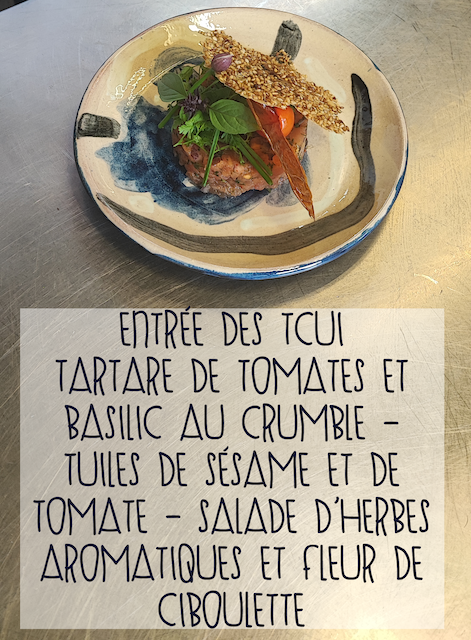 ENTRÉE DES TCUI
TARTARE DE TOMATES ET
BASILIC AU CRUMBLE -
TUILES DE SÉSAME ET DE
TOMATE - SALADE D'HERBES
AROMATIQUES ET FLEUR DE
CIBOULETTE